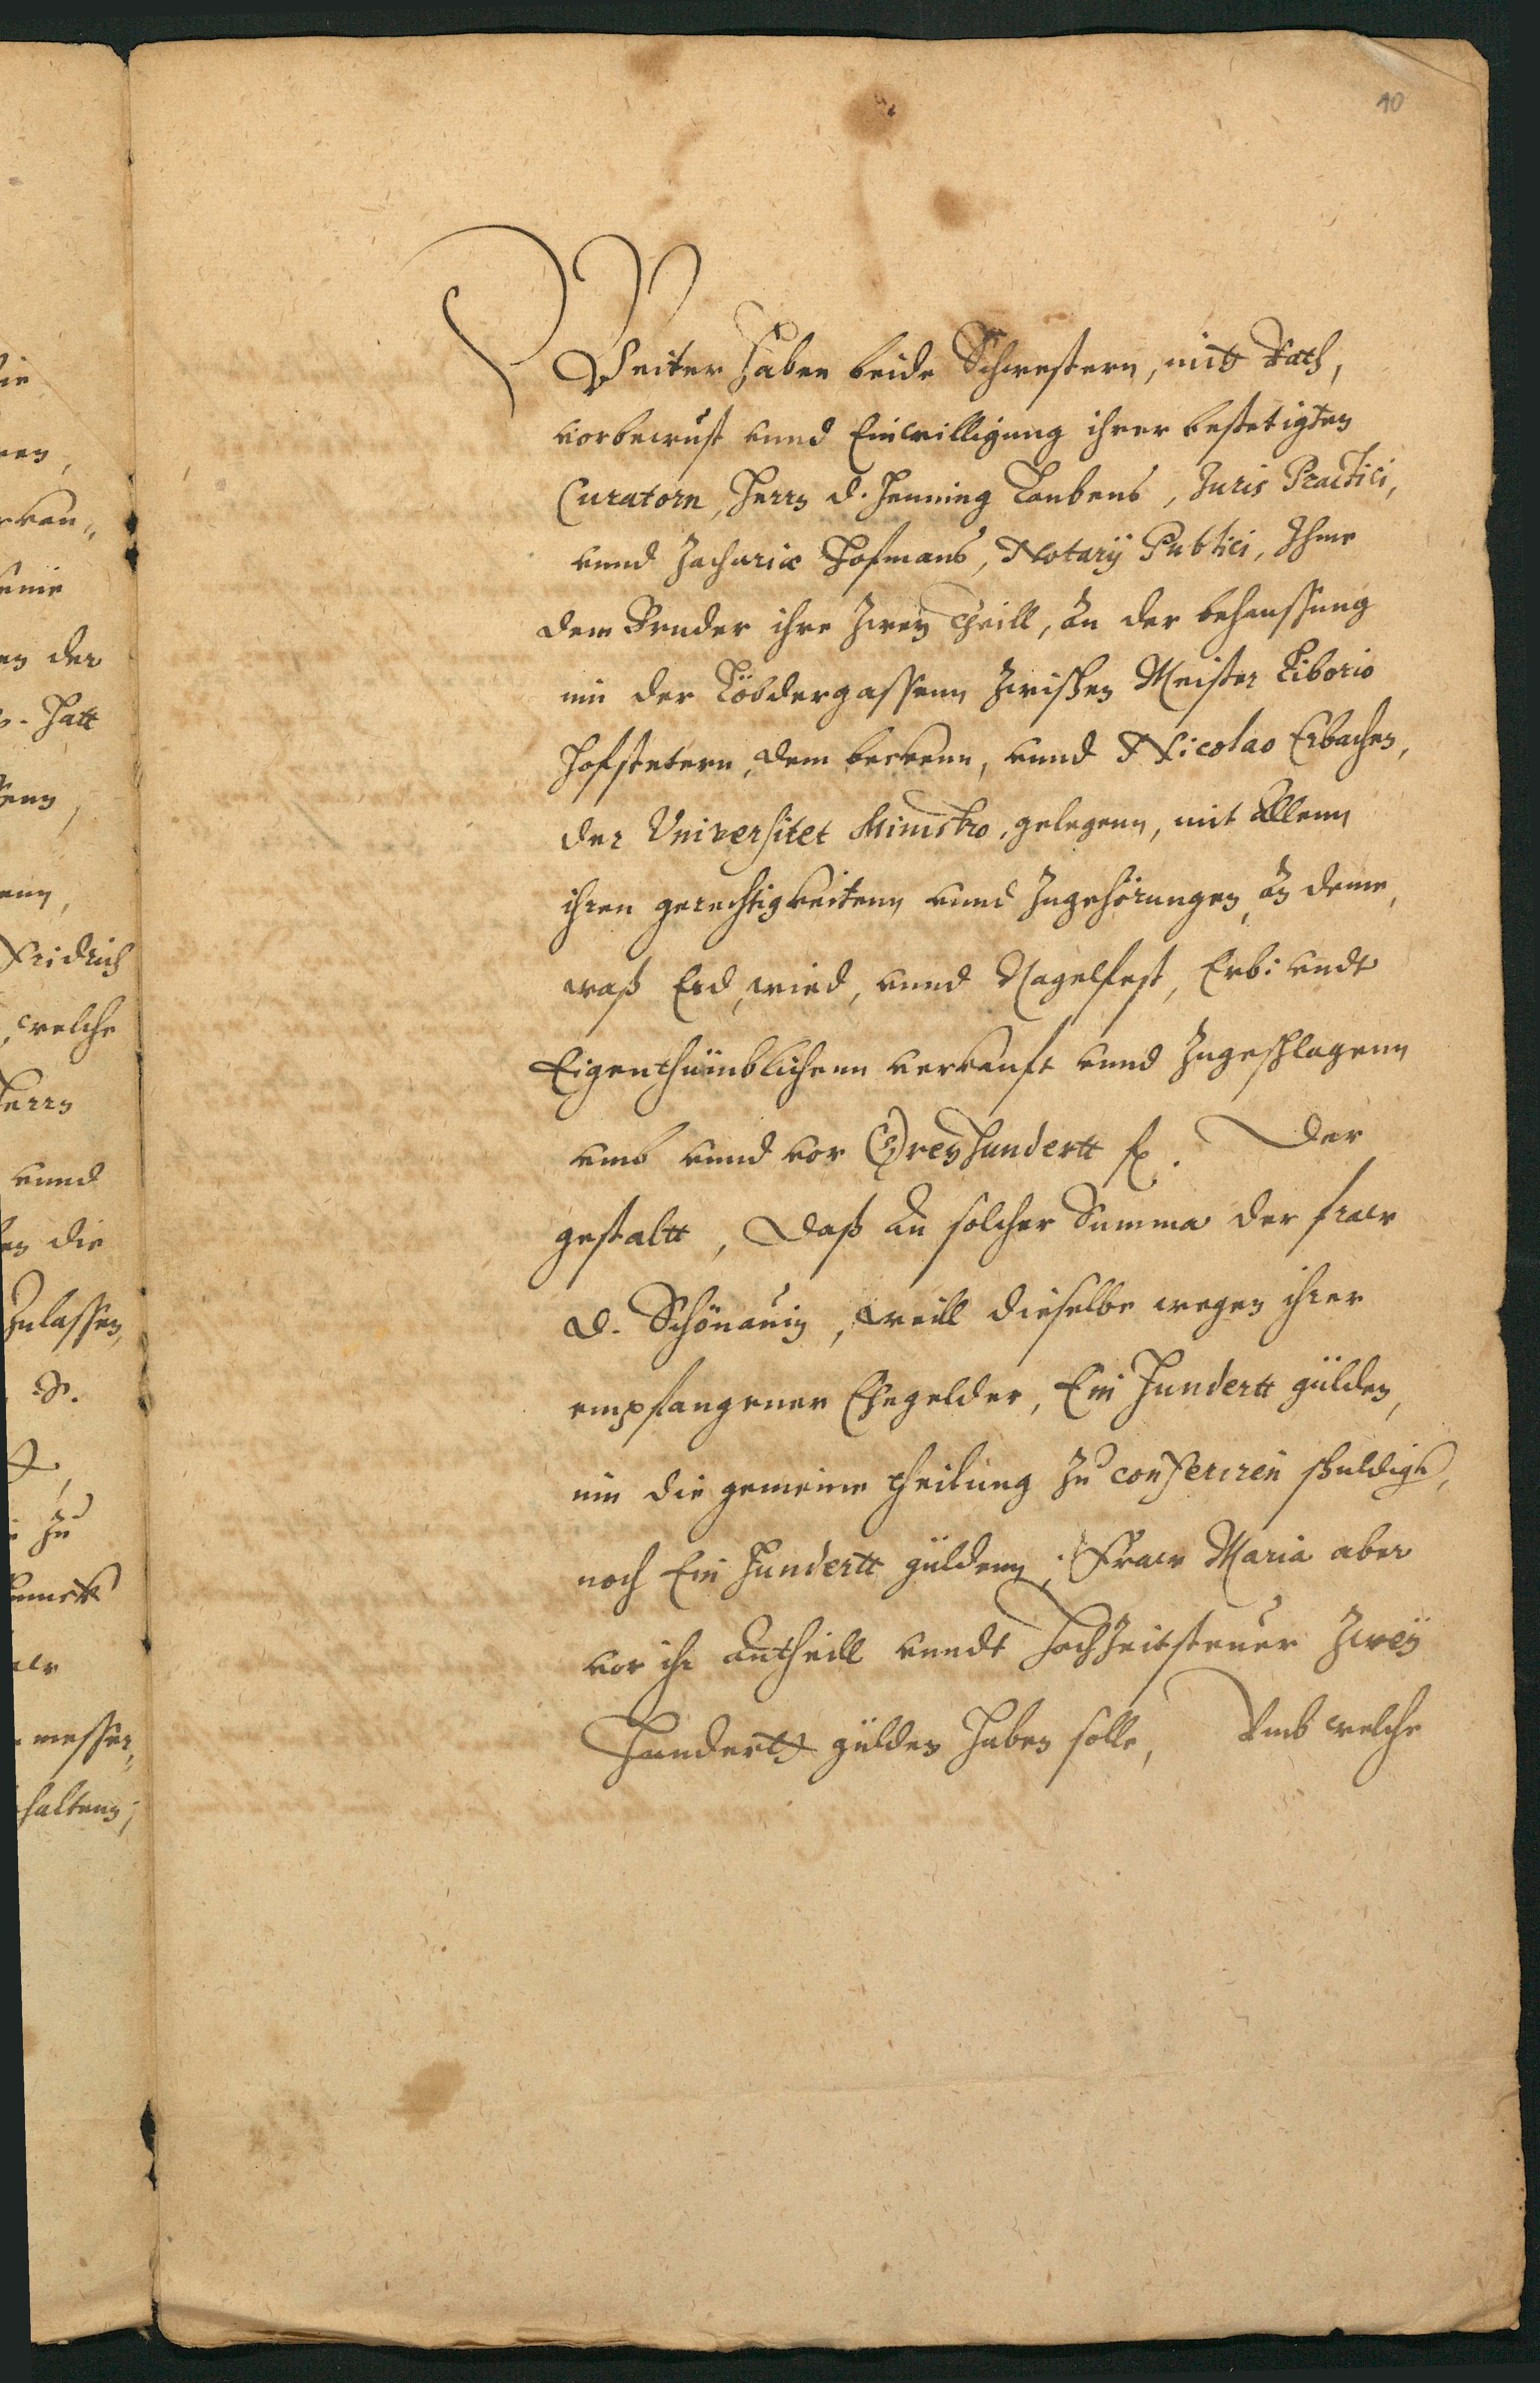 10
Weiter haben beide Schwestern, mitt Rath,
vorbewust vnnd Einwilligung ihrer bestetigten
Curatorn, Herrn D. Henning Taubens, Juris Practici,
vnnd Zachariæ Hofmans, Notarij Publici, Ihme
dem Bruder ihre zwey theill, an der behaussung
inn der Löbdergassenn zwischen Meister Liborio
Hofstetern, dem beckenn, vnnd Nicolao Erbachen,
der Vniversitet Ministro, gelegenn, mit allenn
ihren gerechtigkeitenn vnnd Zugehörungen, an deme,
waß Erd, wied, vnnd Nagelfest, Erb: vndt
Eigenthümblichenn verkauft vnnd Zugeschlagenn
vmb vnnd vor Dreyhundertt fl. Der
gestaltt, Daß an solcher Summa der fraw
D. Schönauin, weill dieselbe wegen ihrer
empfangener Ehegelder, Ein Hundertt gülden,
inn die gemeine theilung zu conferiren schuldigk,
noch Ein Hundertt güldenn; Fraw Maria aber
vor ihr antheill vnndt Hochzeitsteuer zwey
Hundertt gülden haben solle, Vmb welche
die
der
Hatt
Fridrich
welche
Herrn
vnnd
die
Zulassen,
zu